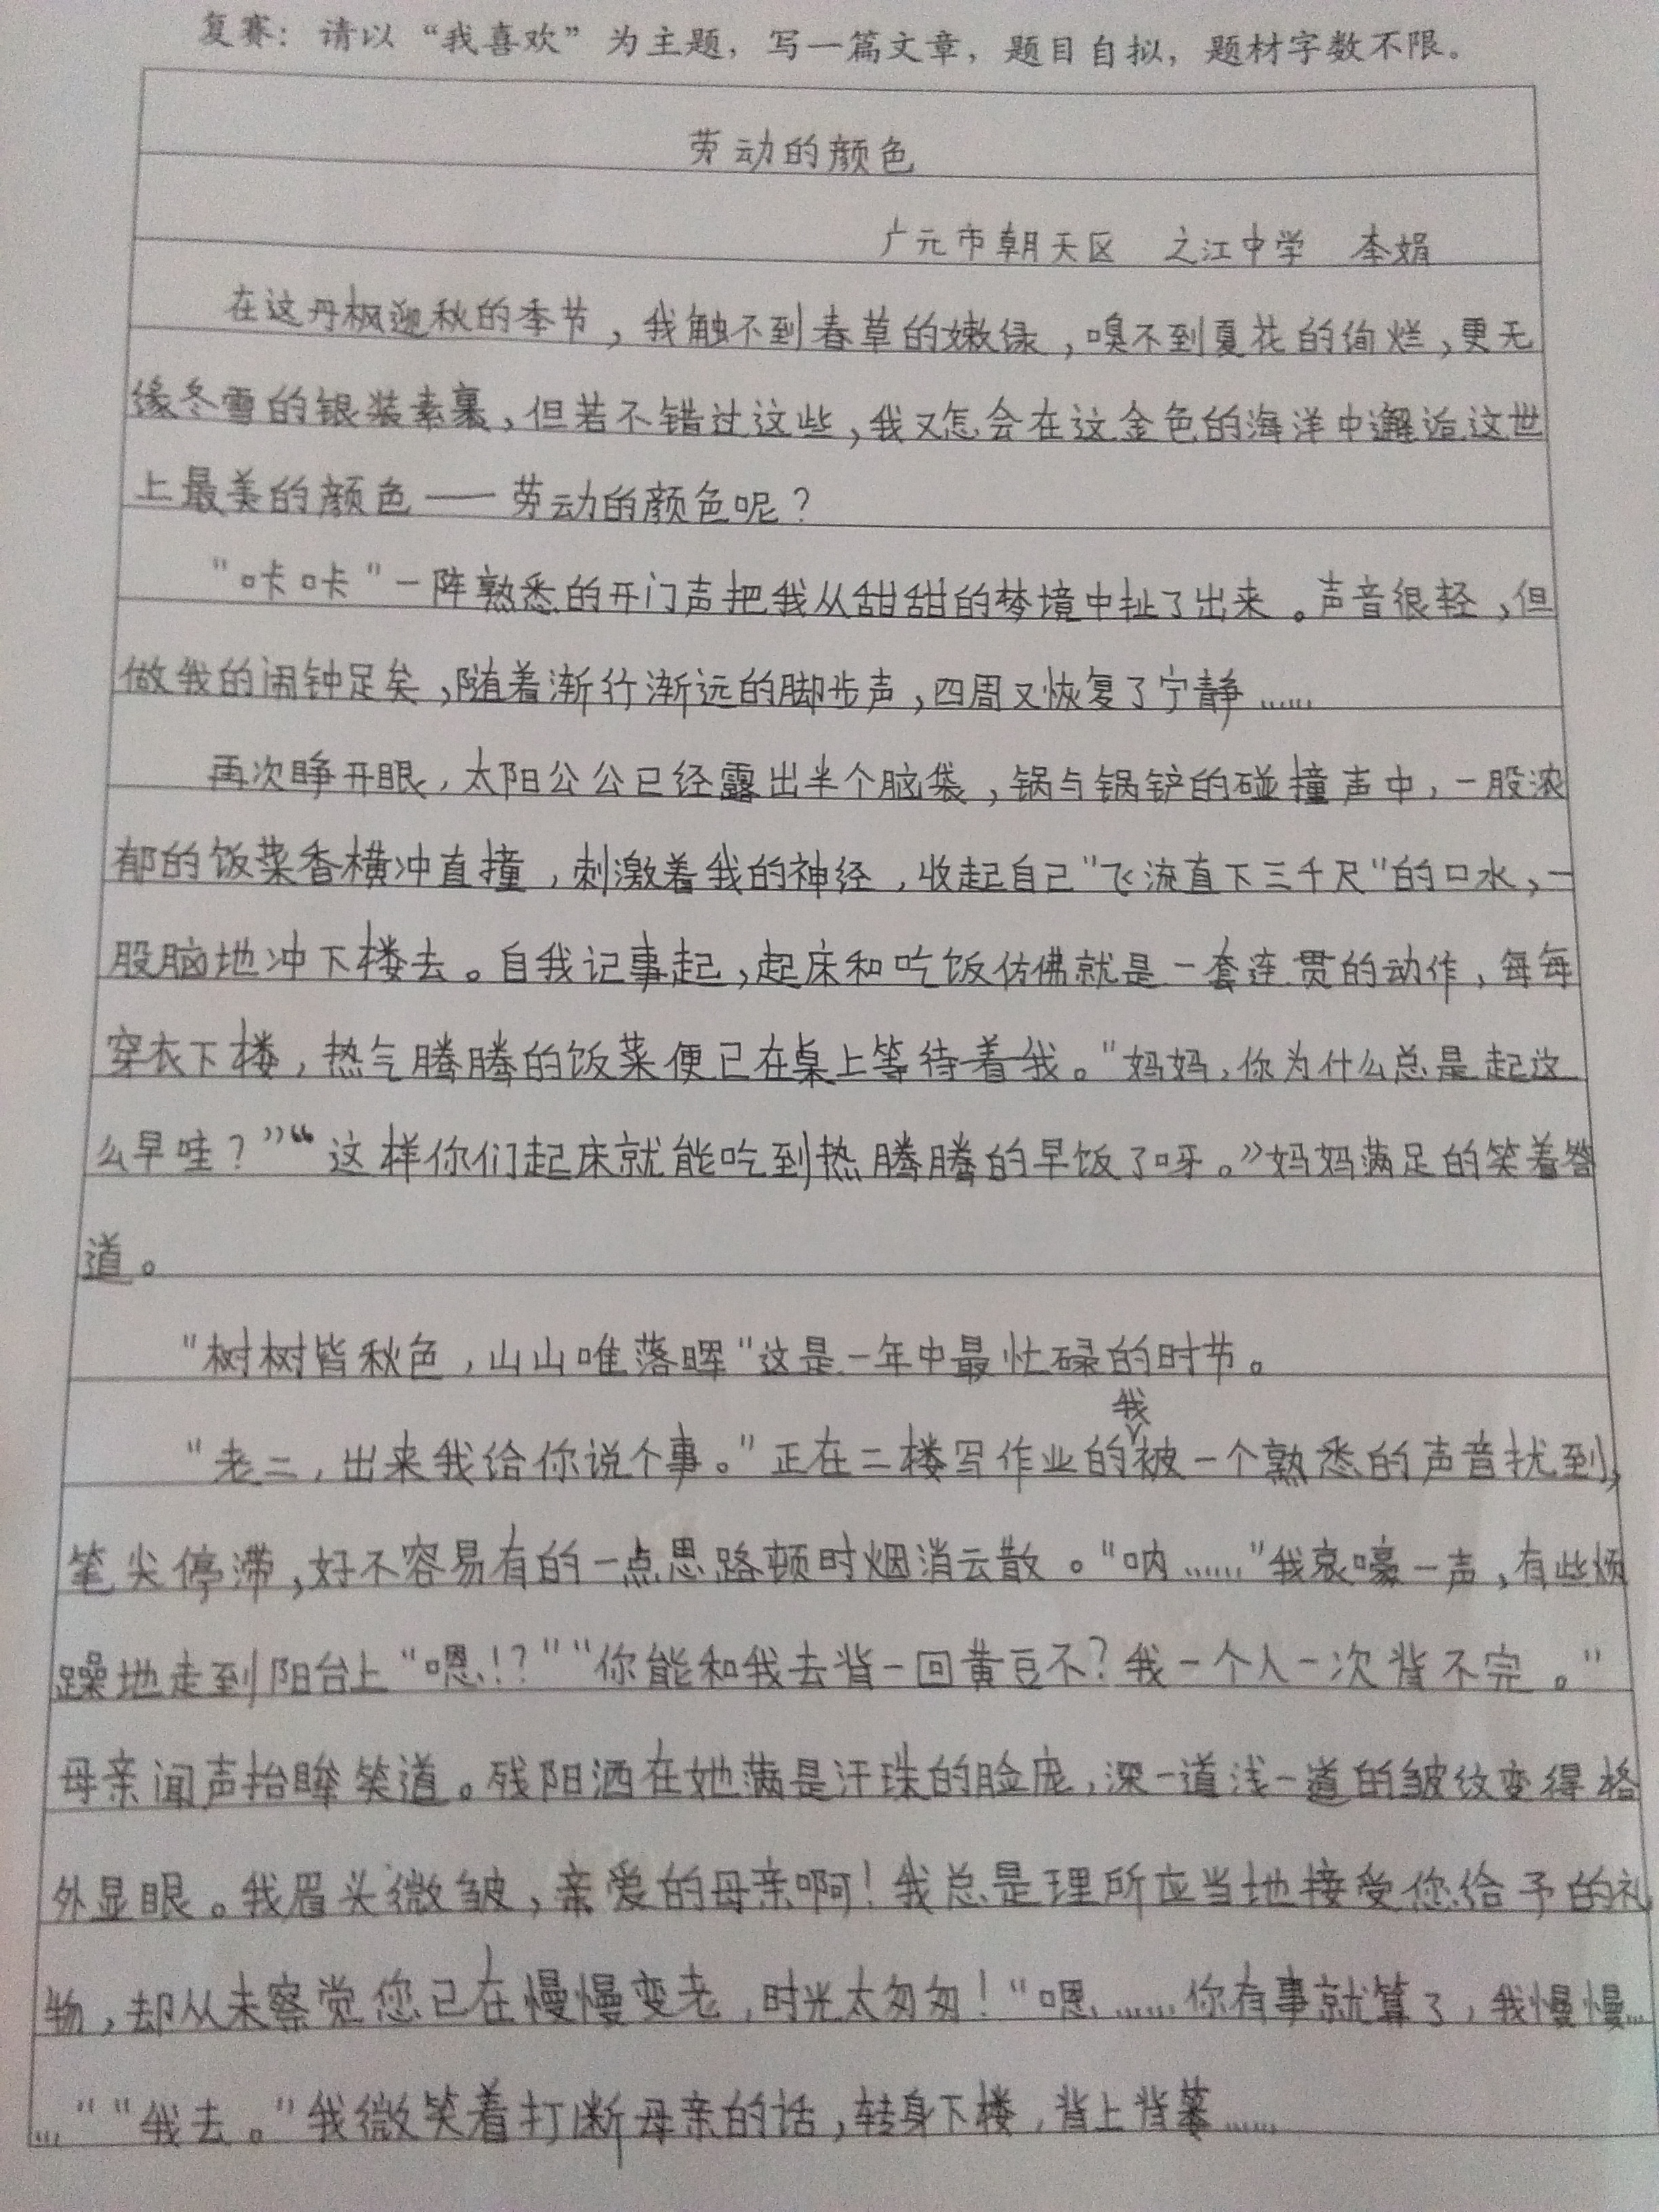 复赛：请以“我喜欢”为主题，写一篇文章，题目自拟，题材字数不限。
劳动的颜色
广元市朝天区 之江中学 李娟
在这丹枫迎秋的季节，我触不到春草的嫩绿，嗅不到夏花的绚烂，更无
缘冬雪的银装素裹，但若不错过这些，我又怎会在这金色的海洋中邂逅这世
上最美的颜色——劳动的颜色呢？
"咔咔"一阵熟悉的开门声把我从甜甜的梦境中扯了出来。声音很轻，但
做我的闹钟足矣，随着渐行渐远的脚步声，四周又恢复了宁静……
再次睁开眼，太阳公公已经露出半个脑袋，锅与锅铲的碰撞声中，一股浓
郁的饭菜香横冲直撞，刺激着我的神经，收起自己"飞流直下三千尺"的口水，一
股脑地冲下楼去。自我记事起，起床和吃饭仿佛就是一套连贯的动作，每每
穿衣下楼，热气腾腾的饭菜便已在桌上等待着我。"妈妈，你为什么总是起这
么早哇？”“这样你们起床就能吃到热腾腾的早饭了呀。”妈妈满足的笑着答
道。
"树树皆秋色，山山唯落晖"这是一年中最忙碌的时节。
"老二，出来我给你说个事。"正在二楼写作业的我被一个熟悉的声音扰到，
笔尖停滞，好不容易有的一点思路顿时烟消云散。"呐……"我哀嚎一声，有些烦
躁地走到阳台上"嗯！？""你能和我去背一回黄豆不？我一个人一次背不完。"
母亲闻声抬眸笑道。残阳洒在她满是汗珠的脸庞，深一道浅一道的皱纹变得格
外显眼。我眉头微皱，亲爱的母亲啊！我总是理所应当地接受您给予的礼
物，却从未察觉您已在慢慢变老，时光太匆匆！"嗯……你有事就算了，我慢慢…
…""我去。"我微笑着打断母亲的话，转身下楼，背上背篓……